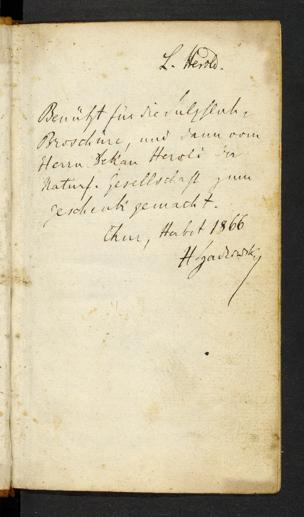 L. Herold.
Benützt für die Sulzfluh-
Broschüre, und dann vom
Herrn Dekan Herold der
Naturf. Gesellschaft zum
Geschenk gemacht.
Chur, Herbst 1866